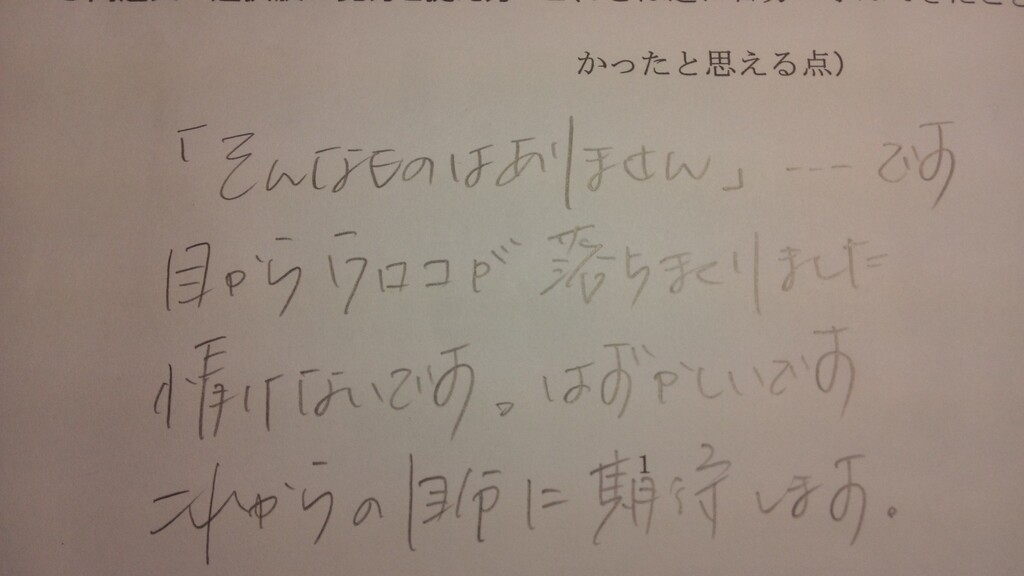 かったと思える点）
「そんなものはありません」---です
目からウロコが落ちまくりました
情けないです。はずかしいです
これからの に期待します。
1